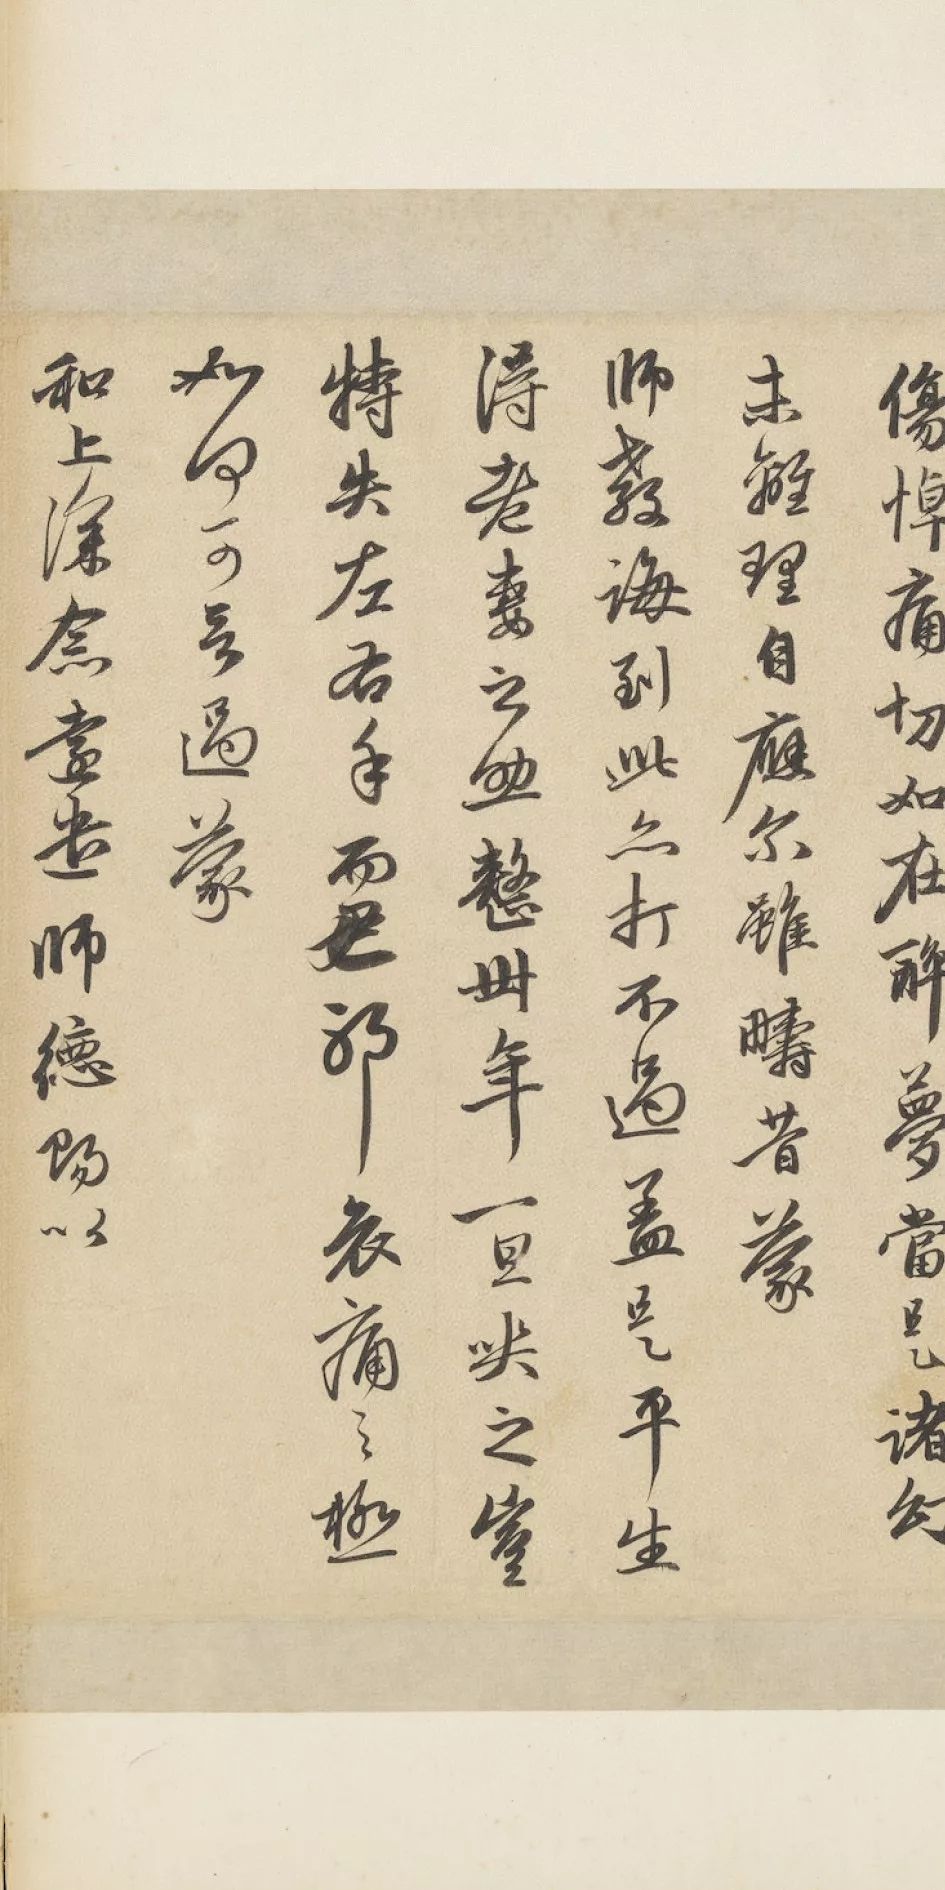 傷悼痛切如在醉夢當是諸幻
未離理自應尔雖疇昔蒙
師教誨到此亦打不過盖是平生
得老妻之助整卅年一旦哭之豈
特失左右手而已耶哀痛之極
如何可言過蒙
和上深念遠遣師德賜以